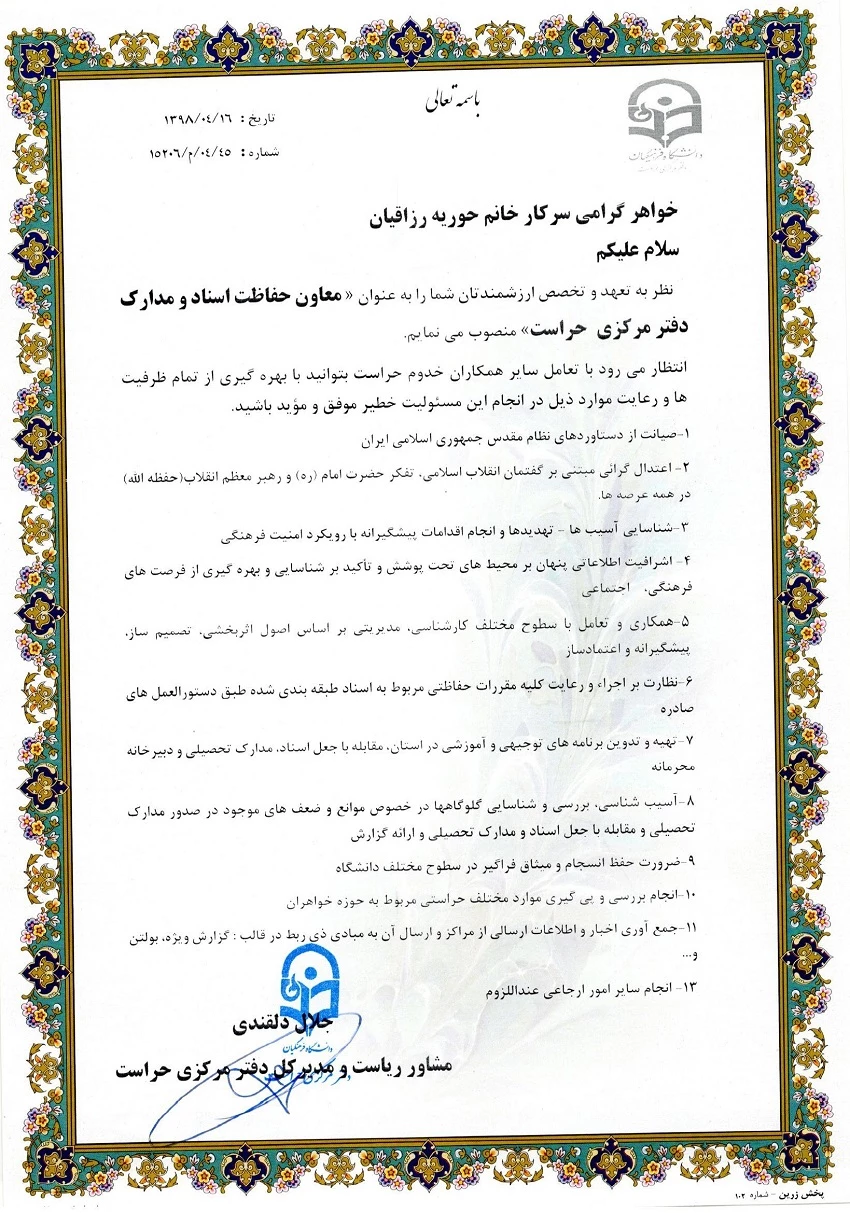 باسمه تعالی
تاریخ : ۱۳۹۸/۰۴/۱۶
شماره : ۱۵۲۰۶/م/۰۴/۴۵
دانشگاه فرهنگیان
خواهر گرامی سرکار خانم حوریه رزاقیان
سلام علیکم
نظر به تعهد و تخصص ارزشمندتان شما را به عنوان « معاون حفاظت اسناد و مدارک
دفتر مرکزی حراست» منصوب می نمایم.
انتظار می رود با تعامل سایر همکاران خدوم حراست بتوانید با بهره گیری از تمام ظرفیت
ها و رعایت موارد ذیل در انجام این مسئولیت خطیر موفق و مؤید باشید.
۱-صیانت از دستاوردهای نظام مقدس جمهوری اسلامی ایران
۲- اعتدال گرائی مبتنی بر گفتمان انقلاب اسلامی، تفکر حضرت امام (ره) و رهبر معظم انقلاب(حفظه الله)
در همه عرصه ها.
۳-شناسایی آسیب ها - تهدیدها و انجام اقدامات پیشگیرانه با رویکرد امنیت فرهنگی
۴- اشرافیت اطلاعاتی پنهان بر محیط های تحت پوشش و تأکید بر شناسایی و بهره گیری از فرصت های
فرهنگی، اجتماعی
۵-همکاری و تعامل با سطوح مختلف کارشناسی، مدیریتی بر اساس اصول اثربخشی، تصمیم ساز،
پیشگیرانه و اعتمادساز
۶-نظارت بر اجراء و رعایت کلیه مقررات حفاظتی مربوط به اسناد طبقه بندی شده طبق دستورالعمل های
صادره
۷-تهیه و تدوین برنامه های توجیهی و آموزشی در استان، مقابله با جعل اسناد، مدارک تحصیلی و دبیرخانه
محرمانه
۸-آسیب شناسی، بررسی و شناسایی گلوگاهها در خصوص موانع و ضعف های موجود در صدور مدارک
تحصیلی و مقابله با جعل اسناد و مدارک تحصیلی و ارائه گزارش
۹-ضرورت حفظ انسجام و میثاق فراگیر در سطوح مختلف دانشگاه
۱۰-انجام بررسی و پی گیری موارد مختلف حراستی مربوط به حوزه خواهران
۱۱-جمع آوری اخبار و اطلاعات ارسالی از مراکز و ارسال آن به مبادی ذی ربط در قالب : گزارش ویژه، بولتن
و...
۱۳- انجام سایر امور ارجاعی عنداللزوم
جلال دلقندی
دانشگاه فرهنگیان
مشاور ریاست و مدیرکل دفتر مرکزی حراست
پخش زرین - شماره ۱۰۲